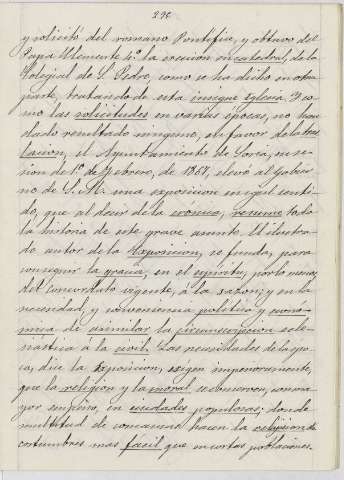 292
y solicitó del romano Pontífice, y obtuvo del
Papa Clemente 4º la erección en catedral, de la
Colegial de S. Pedro, como se ha dicho en otra
parte, tratando de esta insigne Iglesia. Y co-
mo las solicitudes en varias épocas, no han
dado resultado ninguno, en favor de la tras
lacion, el Ayuntamiento de Soria, en se-
sion de 1º de Febrero, de 1864, elevó al Gobier
no de S. M. una exposicion en igual senti-
do, que al decir de la cronica, resume toda
la historia de este grave asunto. El ilustra-
do autor de la Exposicion, se funda, para
conseguir la gracia, en el espiritu, por lo menos,
del Concordato vigente, á la sazon; y en la
necesidad, y conveniencia politica y econó-
mica de asimilar la circunscripcion ecle-
siastica á la civil. Las necesidades de la épo-
ca, dice la Exposicion, exigen imperiosamente,
que la religion y la moral se conserven, con ma
yor empeño, en ciudades populosas; donde
multitud de causas hacen la relajacion de
costumbres mas fácil que en cortas poblaciones.